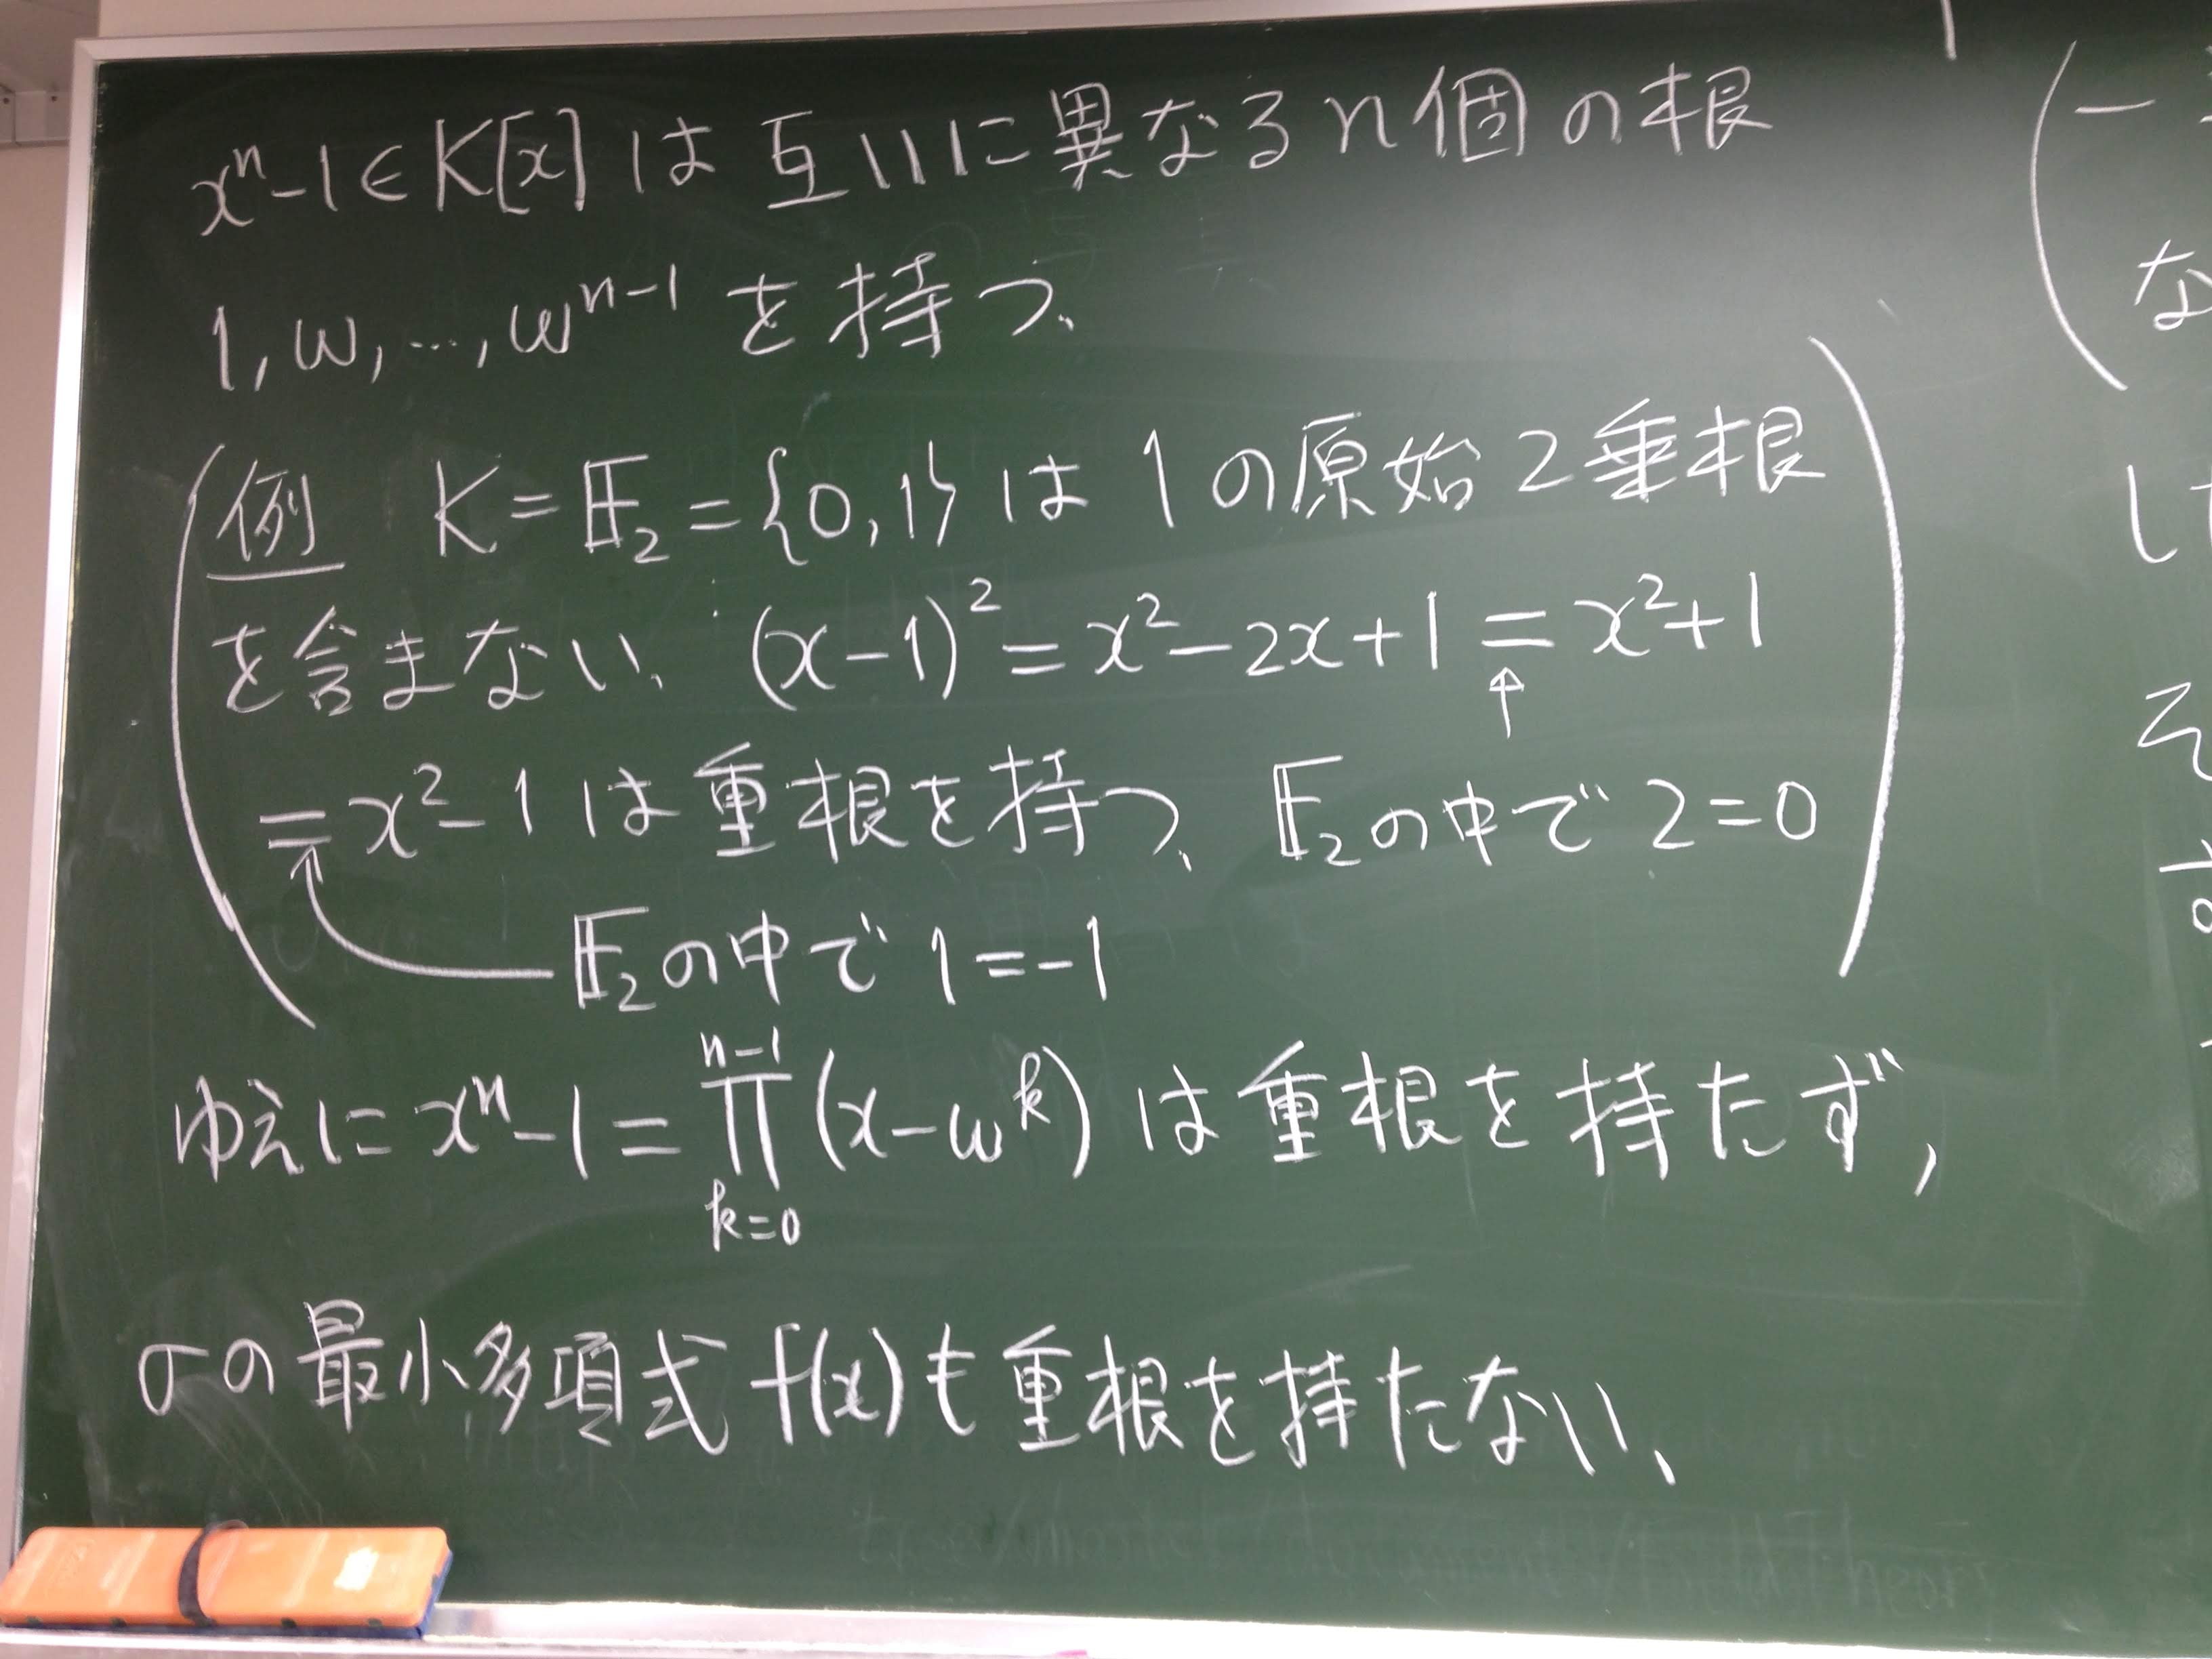 xⁿ-1∈K[x]は互いに異なるn個の根
1, ω, …, ωⁿ⁻¹を持つ、
(例 K=𝔽₂={0,1}は1の原始2乗根
を含まない、 (x-1)²=x²-2x+1=x²+1
↑
=x²-1は重根を持つ、 𝔽₂の中で2=0
↑ 𝔽₂の中で1=-1)
ゆえに xⁿ-1=∏_{k=0}^{n-1}(x-ωᵏ)は重根を持たず,
σの最小多項式f(x)も重根を持たない、
(
な
し
そ